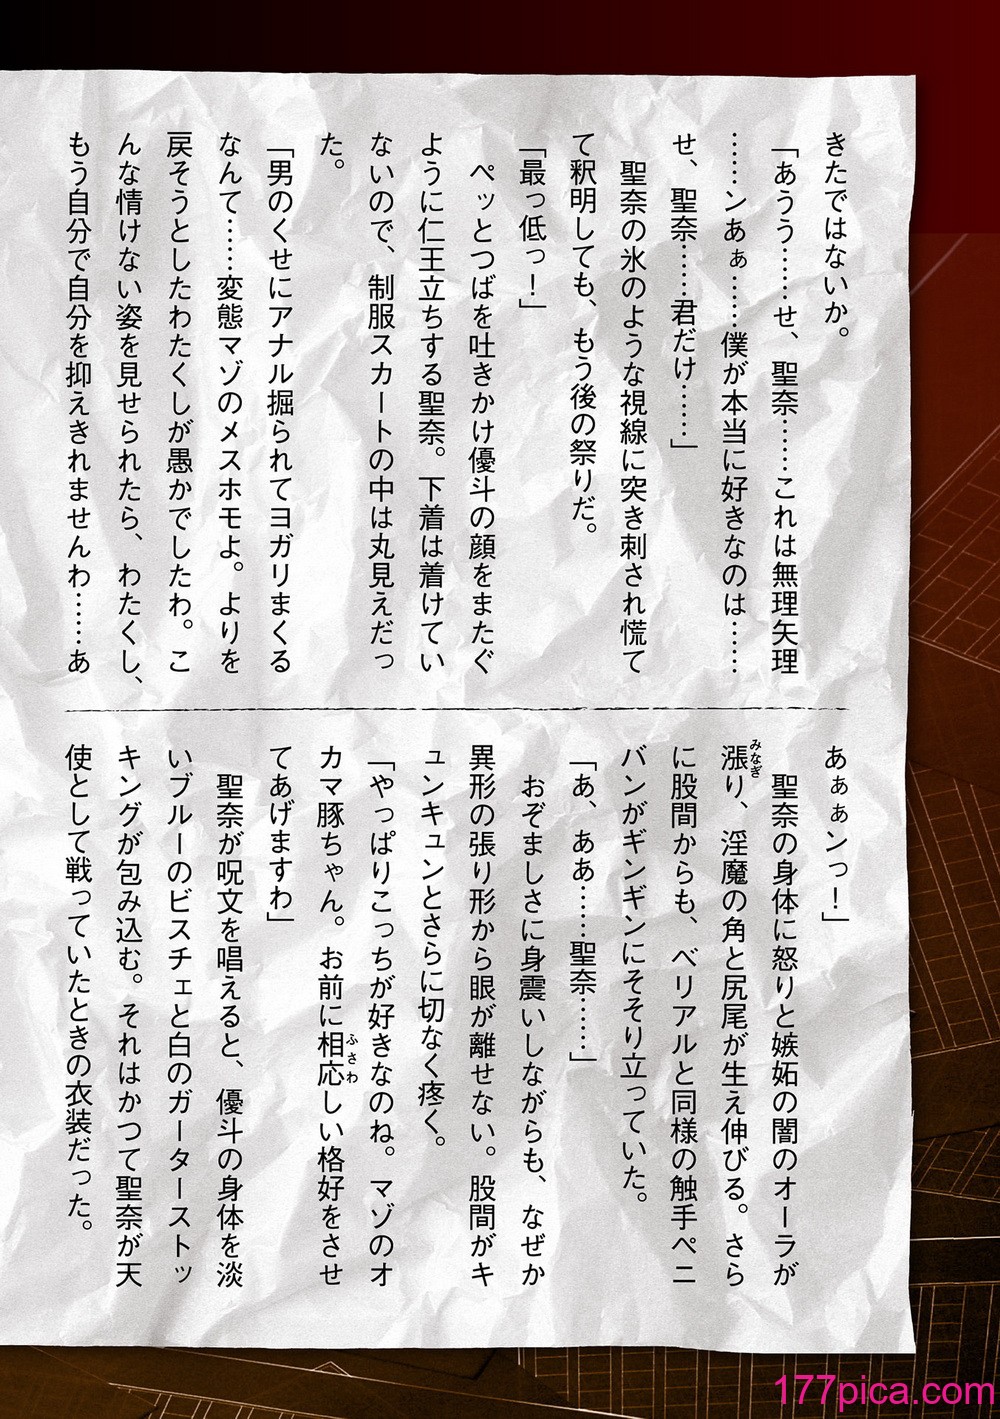 きたではないか。
「あうう……せ、聖奈……これは無理矢理
……ンあぁ……僕が本当に好きなのは……
せ、聖奈……君だけ……」
聖奈の氷のような視線に突き刺され慌て
て釈明しても、もう後の祭りだ。
「最っ低っ！」
ペッとつばを吐きかけ優斗の顔をまたぐ
ように仁王立ちする聖奈。下着は着けてい
ないので、制服スカートの中は丸見えだっ
た。
「男のくせにアナル掘られてヨガリまくる
なんて……変態マゾのメスホモよ。よりを
戻そうとしたわたくしが愚かでしたわ。こ
んな情けない姿を見せられたら、わたくし、
もう自分で自分を抑えきれませんわ……あ
あぁぁンっ！」
聖奈の身体に怒りと嫉妬の闇のオーラが
漲り、淫魔の角と尻尾が生え伸びる。さら
みなぎ
に股間からも、ベリアルと同様の触手ペニ
バンがギンギンにそそり立っていた。
「あ、ああ……聖奈……」
おぞましさに身震いしながらも、なぜか
異形の張り形から眼が離せない。股間がキ
ュンキュンとさらに切なく疼く。
「やっぱりこっちが好きなのね。マゾのオ
カマ豚ちゃん。お前に相応しい格好をさせ
ふさわ
てあげますわ」
聖奈が呪文を唱えると、優斗の身体を淡
いブルーのビスチェと白のガーターストッ
キングが包み込む。それはかつて聖奈が天
使として戦っていたときの衣装だった。
177pica.com